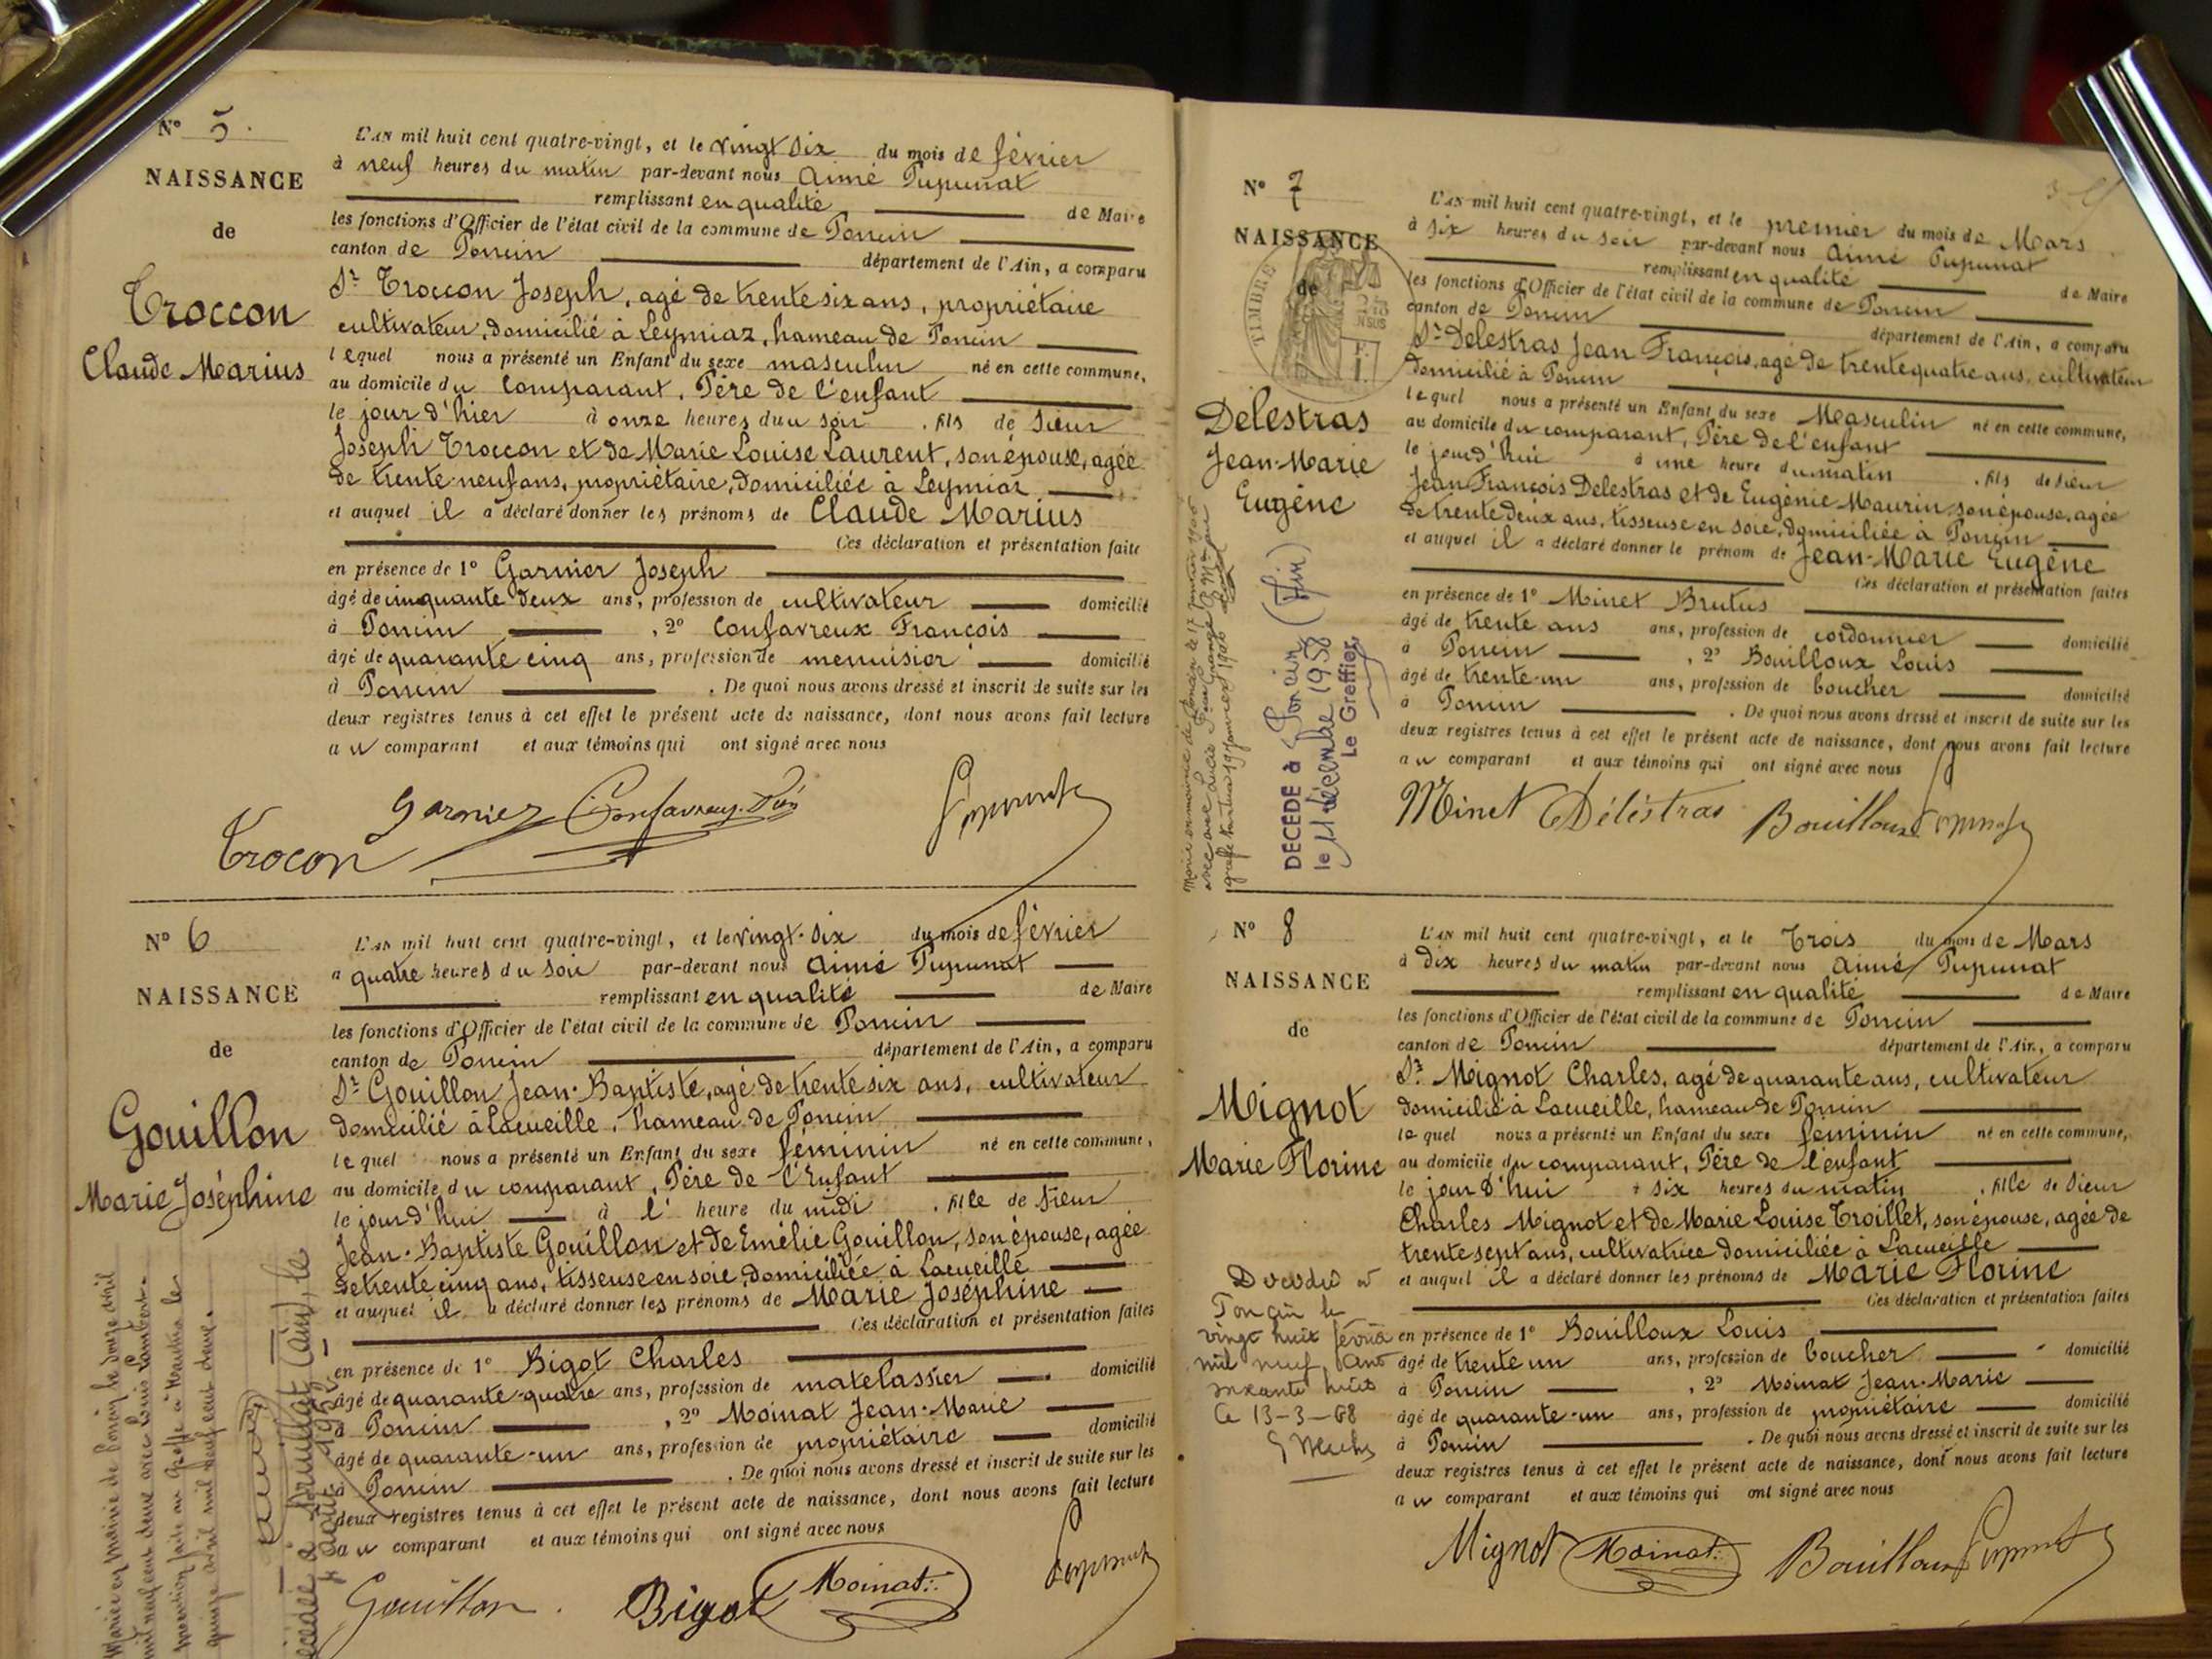 N° 5.
NAISSANCE
de
Troccon
Claude Marius
L'AN mil huit cent quatre-vingt, et le vingt six du mois de février
à neuf heures du matin par-devant nous Aimé Pupunat
remplissant en qualité de Maire
les fonctions d'Officier de l'état civil de la commune de Poncin
canton de Poncin département de l'Ain, a comparu
Sr. Troccon Joseph, agé de trente six ans, propriétaire
cultivateur, domicilié à Leymiaz, hameau de Poncin
lequel nous a présenté un Enfant du sexe masculin né en cette commune,
au domicile du comparant, Père de l'enfant
le jour d'hier à onze heures du soir, fils de Sieur
Joseph Troccon et de Marie Louise Laurent, son épouse, agée
de trente neuf ans, propriétaire, domiciliée à Leymiaz
et auquel il a déclaré donner les prénoms de Claude Marius
Ces déclaration et présentation faite
en présence de 1° Garnier Joseph
âgé de cinquante deux ans, profession de cultivateur domicilié
à Poncin, 2° Confavreux François
âgé de quarante cinq ans, profession de menuisier domicilié
à Poncin. De quoi nous avons dressé et inscrit de suite sur les
deux registres tenus à cet effet le présent acte de naissance, dont nous avons fait lecture
au comparant et aux témoins qui ont signé avec nous
Garnier Confavreux
Trocon Pupunat
N° 6
NAISSANCE
de
Gouillon
Marie Joséphine
L'AN mil huit cent quatre-vingt, et le vingt-six du mois de février
à quatre heures du soir par-devant nous Aimé Pupunat
remplissant en qualité de Maire
les fonctions d'Officier de l'état civil de la commune de Poncin
canton de Poncin département de l'Ain, a comparu
Sr. Gouillon Jean-Baptiste, agé de trente six ans, cultivateur
domicilié à Lacueille, hameau de Poncin
lequel nous a présenté un Enfant du sexe féminin né en cette commune,
au domicile du comparant, Père de l'Enfant
le jour d'hui à l' heure du midi, fille de Sieur
Jean-Baptiste Gouillon et de Emélie Gouillon, son épouse, agée
de trente cinq ans, tisseuse en soie, domiciliée à Lacueille
et auquel il a déclaré donner les prénoms de Marie Joséphine
Ces déclaration et présentation faites
en présence de 1° Bigot Charles
âgé de quarante-quatre ans, profession de matelassier domicilié
à Poncin, 2° Moinat Jean-Marie
âgé de quarante-un ans, profession de propriétaire domicilié
à Poncin. De quoi nous avons dressé et inscrit de suite sur les
deux registres tenus à cet effet le présent acte de naissance, dont nous avons fait lecture
au comparant et aux témoins qui ont signé avec nous
Gouillon. Bigot Moinat Pupunat
Mariée en mairie de Poncin le douze avril
mil neuf cent deux avec Louis Lambert.
mention faite au Greffe à Nantua le
quinze avril mil neuf cent deux.
N° 7
NAISSANCE
de
TIMBRE
Delestras
Jean-Marie
Eugène
L'AN mil huit cent quatre-vingt, et le premier du mois de Mars
à six heures du soir par-devant nous Aimé Pupunat
remplissant en qualité de Maire
les fonctions d'Officier de l'état civil de la commune de Poncin
canton de Poncin département de l'Ain, a comparu
Sr. Delestras Jean François, agé de trente quatre ans, cultivateur
domicilié à Poncin
lequel nous a présenté un Enfant du sexe Masculin né en cette commune,
au domicile du comparant, Père de l'enfant
le jour d'hui à une heure du matin, fils de sieur
Jean François Delestras et de Eugénie Maurin, son épouse, agée
de trente deux ans, tisseuse en soie, domiciliée à Poncin
et auquel il a déclaré donner le prénom de Jean-Marie Eugène
Ces déclaration et présentation faites
en présence de 1° Minet Brutus
âgé de trente ans ans, profession de cordonnier domicilié
à Poncin, 2° Bouilloux Louis
âgé de trente-un ans, profession de boucher domicilié
à Poncin. De quoi nous avons dressé et inscrit de suite sur les
deux registres tenus à cet effet le présent acte de naissance, dont nous avons fait lecture
au comparant et aux témoins qui ont signé avec nous
Minet Déléstras Bouilloux Pupunat
DÉCÉDÉ à Poncin (Ain)
le 11 décembre 1958
Le Greffier
N° 8
NAISSANCE
de
Mignot
Marie Florine
L'AN mil huit cent quatre-vingt, et le Trois du mois de Mars
à dix heures du matin par-devant nous Aimé Pupunat
remplissant en qualité de Maire
les fonctions d'Officier de l'état civil de la commune de Poncin
canton de Poncin département de l'Ain, a comparu
Sr. Mignot Charles, agé de quarante ans, cultivateur
domicilié à Lacueille, hameau de Poncin
lequel nous a présenté un Enfant du sexe féminin né en cette commune,
au domicile du comparant, Père de l'enfant
le jour d'hui à six heures du matin, fille de Sieur
Charles Mignot et de Marie Louise Troillet, son épouse, agée de
trente sept ans, cultivatrice domiciliée à Lacueille
et auquel il a déclaré donner les prénoms de Marie Florine
Ces déclaration et présentation faites
en présence de 1° Bouilloux Louis
âgé de trente un ans, profession de boucher domicilié
à Poncin, 2° Moinat Jean-Marie
âgé de quarante-un ans, profession de propriétaire domicilié
à Poncin. De quoi nous avons dressé et inscrit de suite sur les
deux registres tenus à cet effet le présent acte de naissance, dont nous avons fait lecture
au comparant et aux témoins qui ont signé avec nous
Mignot Moinat Bouilloux Pupunat
Décédée à
Poncin le
vingt huit février
mil neuf cent
soixante huit
Le 13-3-68